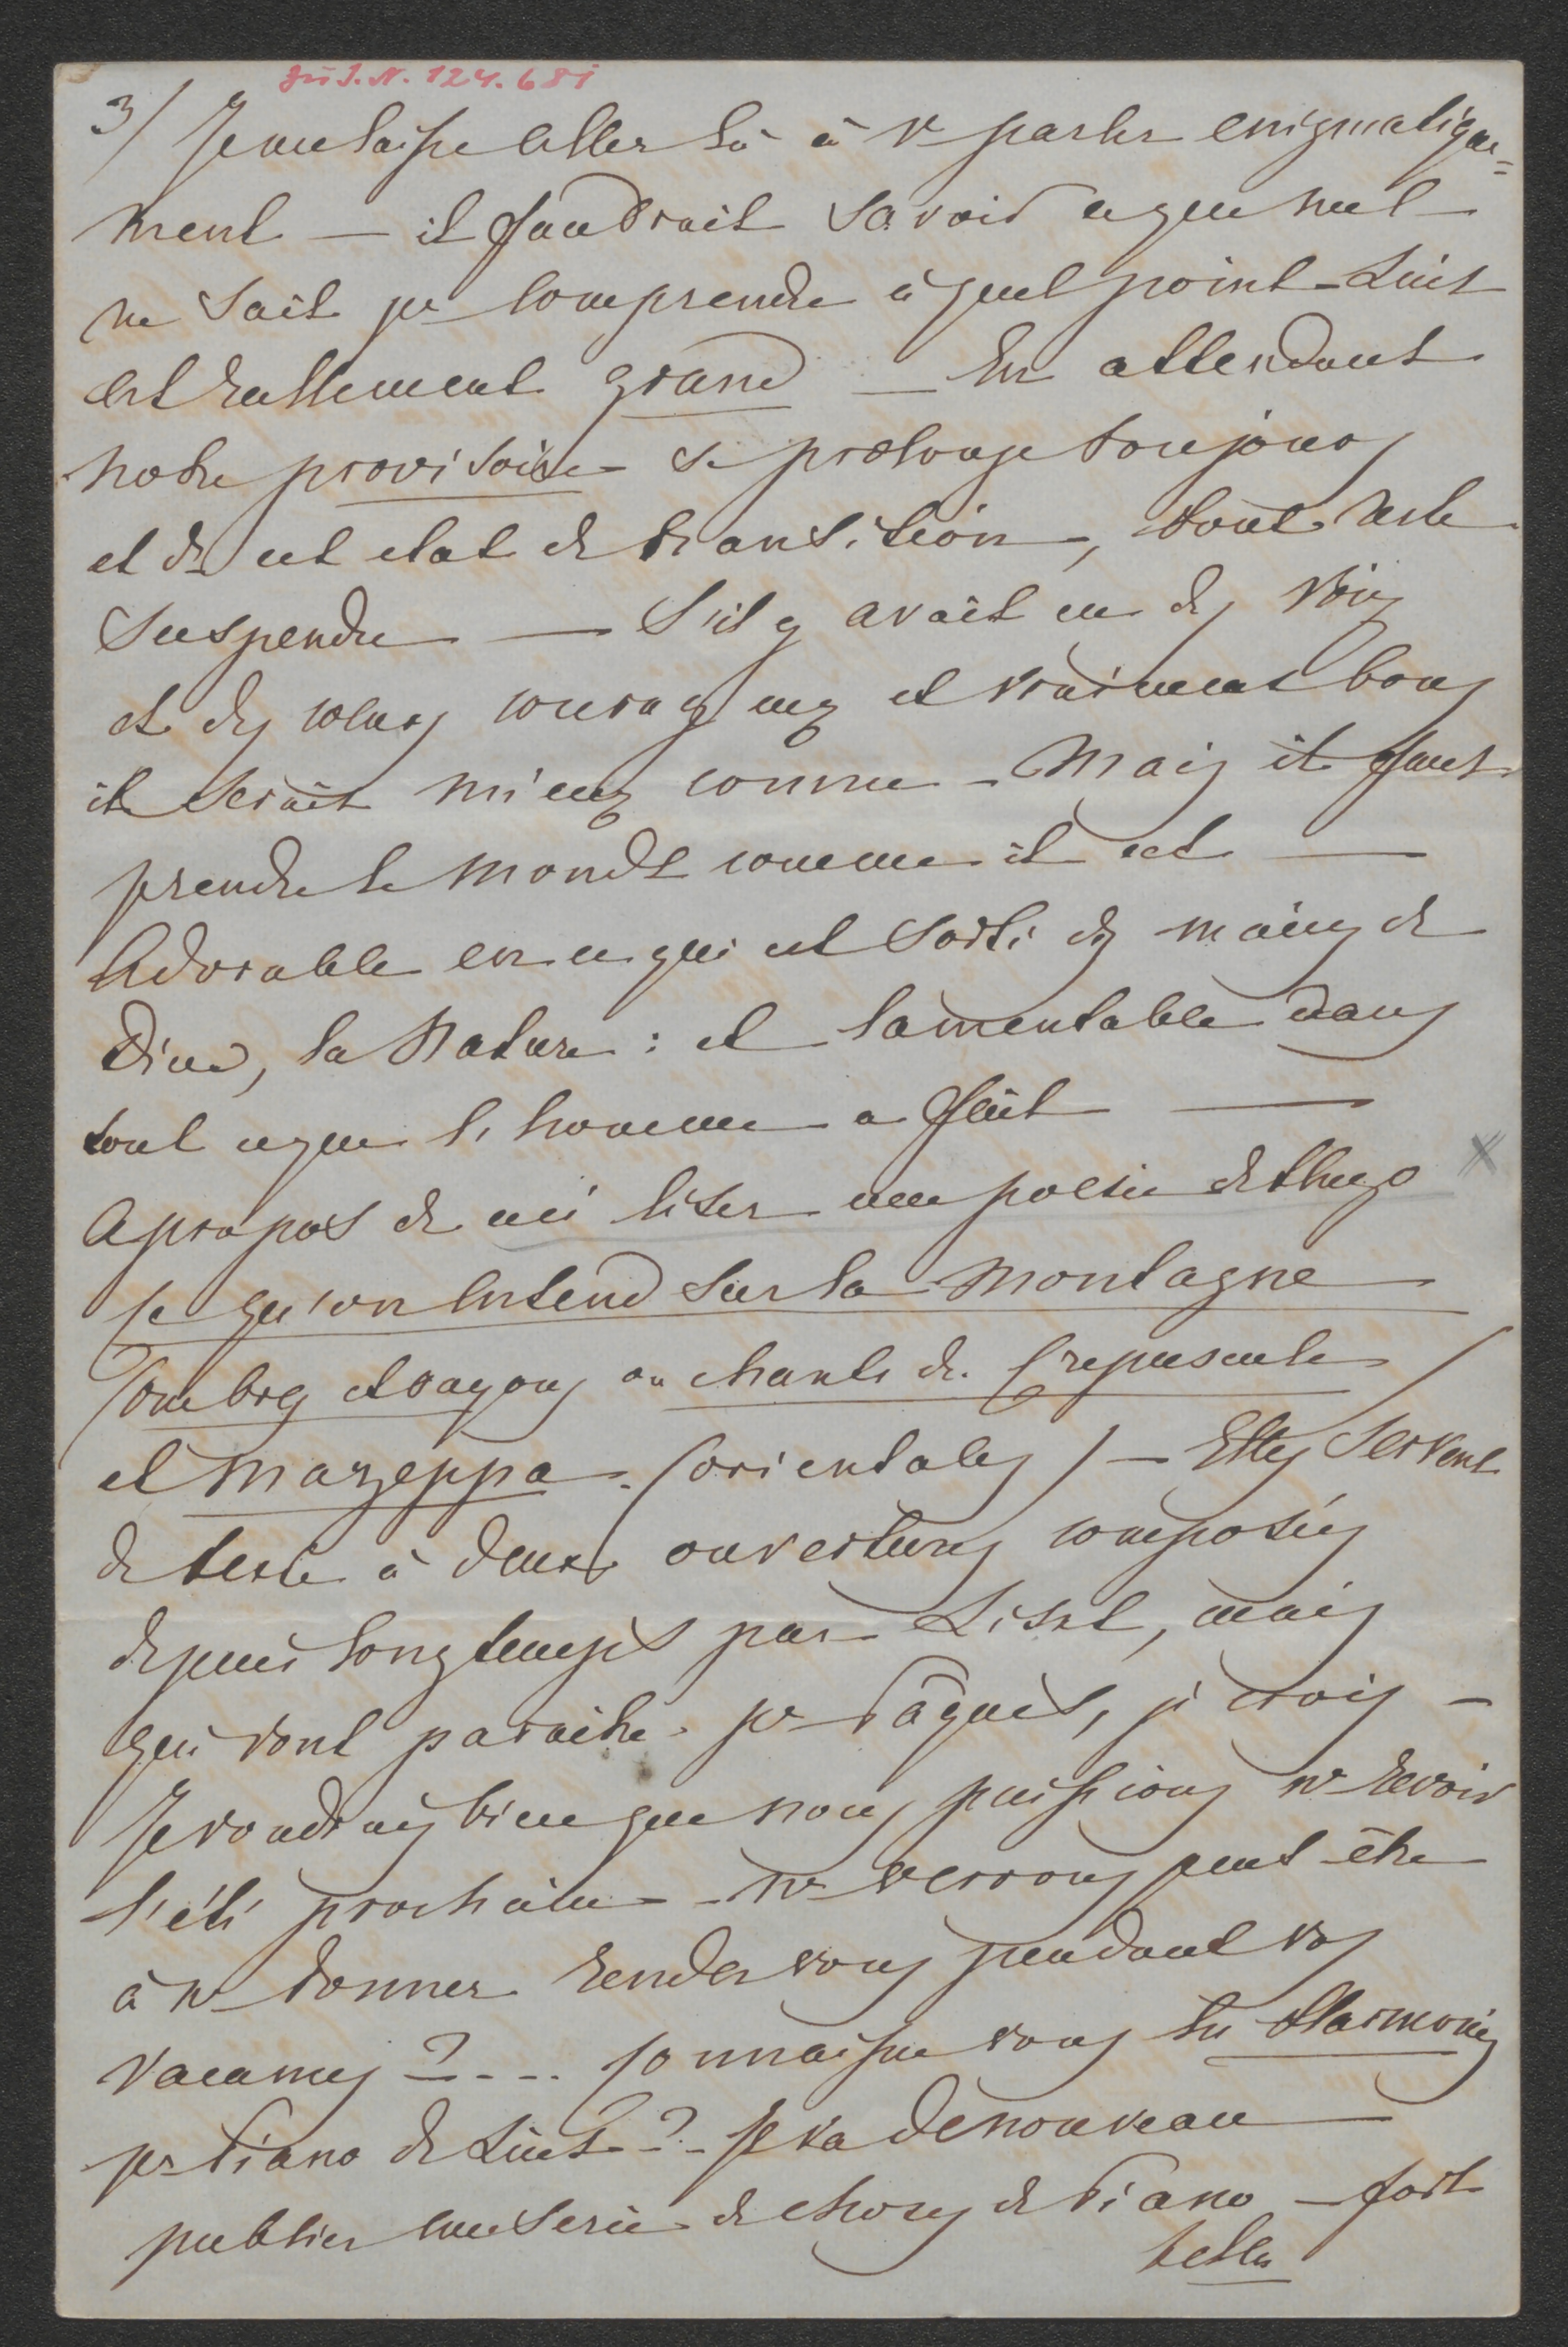 zu I.N. 124.681
3/ Je me laisse aller là à v parler enigmatique=
ment — il faudrait savoir ce que nul
ne sait pr comprendre à quel point Liszt
est reellement grand — En attendant
notre provisoire se prolonge toujours
et ds cet etat de transition, tout reste
suspendu — S'il y avait eu des Rois
et des cœurs courageux et vraiment bons
il serait mieux connu — Mais il faut
prendre le monde comme il est —
Adorable en ce qui est sorti des mains de
Dieu, la Nature : et lamentable dans
tout ce que l'homme a fait —
Apropos de cela lisez une poesie de Hugo
Ce qu'on entend sur la Montagne
(ombres et rayons ou chants du Crepuscule)
et Mazeppa. (orientales) — Elles servent
de texte à deux ouvertures composées
depuis longtemps par Liszt, mais
qui vont paraitre pr Pâques, je crois —
Je voudrais bien que nous puissions ns revoir
l'été prochain — ns verrons peut-être
à ns donner rendez vous pendant vos
vacances ? - - . Connaissez vous les Harmonies
pr Piano de Liszt ? — Il va de nouveau
publier une serie de choses de Piano — fort
belles